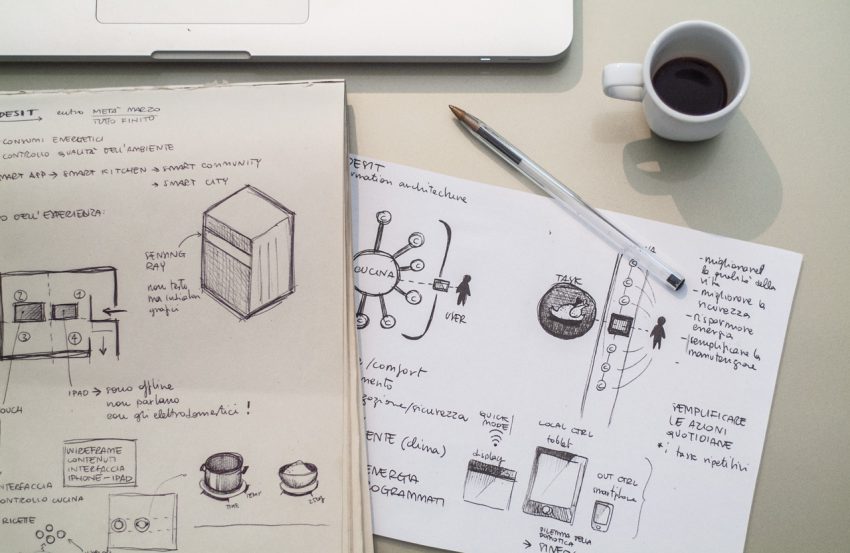 DESIT → entro METÀ MARZO
TUTTO FINITO
CONSUMI ENERGETICI
CONTROLLO QUALITÀ DELL'AMBIENTE
SMART APP → SMART KITCHEN → SMART COMMUNITY
→ SMART CITY
DELL'ESPERIENZA:
SENSING
RAY
non testo
ma indicatori
grafici
2
1
3
4
IPAD → sono offline
non parlano
con gli elettrodomestici!
OUCH
WIREFRAME
CONTENUTI
INTERFACCIA
IPHONE-IPAD
INTERFACCIA
CONTROLLO CUCINA
RICETTE
TIME
TEMP
250g
DESIT
rmation architecture
C
C
C
C
C
CUCINA
USER
TASK
C
C
C
C
C
C
- migliorare
la qualità della
vita
- migliorare la
sicurezza
- risparmiare
energia
- semplificare la
manutenzione
-
/comfort
mento
/sicurezza
ENTE (clima)
ENERGIA
OGRAMMATI
QUICK
MODE
display
LOCAL CTRL
tablet
OUT CTRL
smartphone
SEMPLIFICARE
LE AZIONI
QUOTIDIANE
* i task ripetitivi
DILEMMA DELLA
DOMOTICA
→